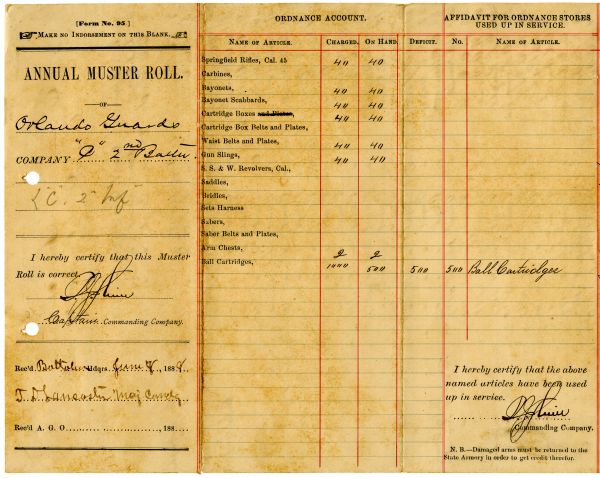 [Form No. 95]
MAKE NO INDORSEMENT ON THIS BLANK.
ANNUAL MUSTER ROLL.
—OF—
Orlando Guards
COMPANY "D" 2nd Battn.
"C." 2" Inf
I hereby certify that this Muster
Roll is correct.
Captain Commanding Company.
Rec'd Battalion Hdqrs. June 7, 188
T. D. Lancaster Maj Comdg
Rec'd A. G. O. 188
ORDNANCE ACCOUNT.
NAME OF ARTICLE. CHARGED. ON HAND. DEFICIT.
Springfield Rifles, Cal. 45 40 40
Carbines,
Bayonets, 40 40
Bayonet Scabbards, 40 40
Cartridge Boxes and Plates, 40 40
Cartridge Box Belts and Plates,
Waist Belts and Plates, 40 40
Gun Slings, 40 40
S. S. & W. Revolvers, Cal.,
Saddles,
Bridles,
Sets Harness
Sabers,
Sabor Belts and Plates,
Arm Chests, 2 2
Ball Cartridges, 1000 500 500
AFFIDAVIT FOR ORDNANCE STORES
USED UP IN SERVICE.
No. NAME OF ARTICLE.
500 Ball Cartridges
I hereby certify that the above
named articles have been used
up in service.
Commanding Company.
N. B.—Damaged arms must be returned to the
State Armory in order to get credit therefor.